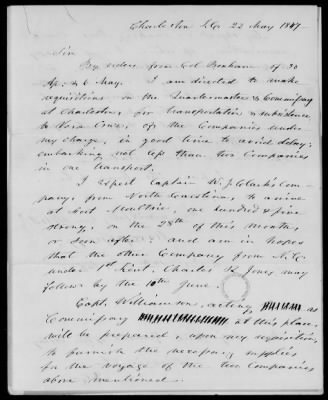 Charleston S.C. 22 May 1847
Sir
By orders from Col Bonham of 30
Ap: & 6 May. I am directed to make
requisitions on the Quartermaster & Commissary
at Charleston, for transportation & subsistence
to Vera Cruz, of the Companies under
my charge, in good time to avoid delay;
embarking not less than two Companies
in one transport.
I expect Captain W. J. Clark's Com-
pany, from North Carolina, to arrive
at Fort Moultrie, one hundred & five
strong, on the 28th of this month
or soon after: and am in hopes
that the other Company from N.C.
under 1st Lieut. Charles R. Jones may
follow by the 10th June.
Capt. Williamson, acting as
Commissary at this place,
will be prepared, upon my requisition,
to furnish the necessary supplies
for the voyage of the two Companies
above mentioned.